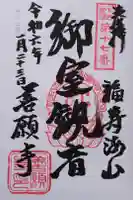 奉拝
第十七番
福寿海山
御室観音
令和六年
月二十三日
善願寺